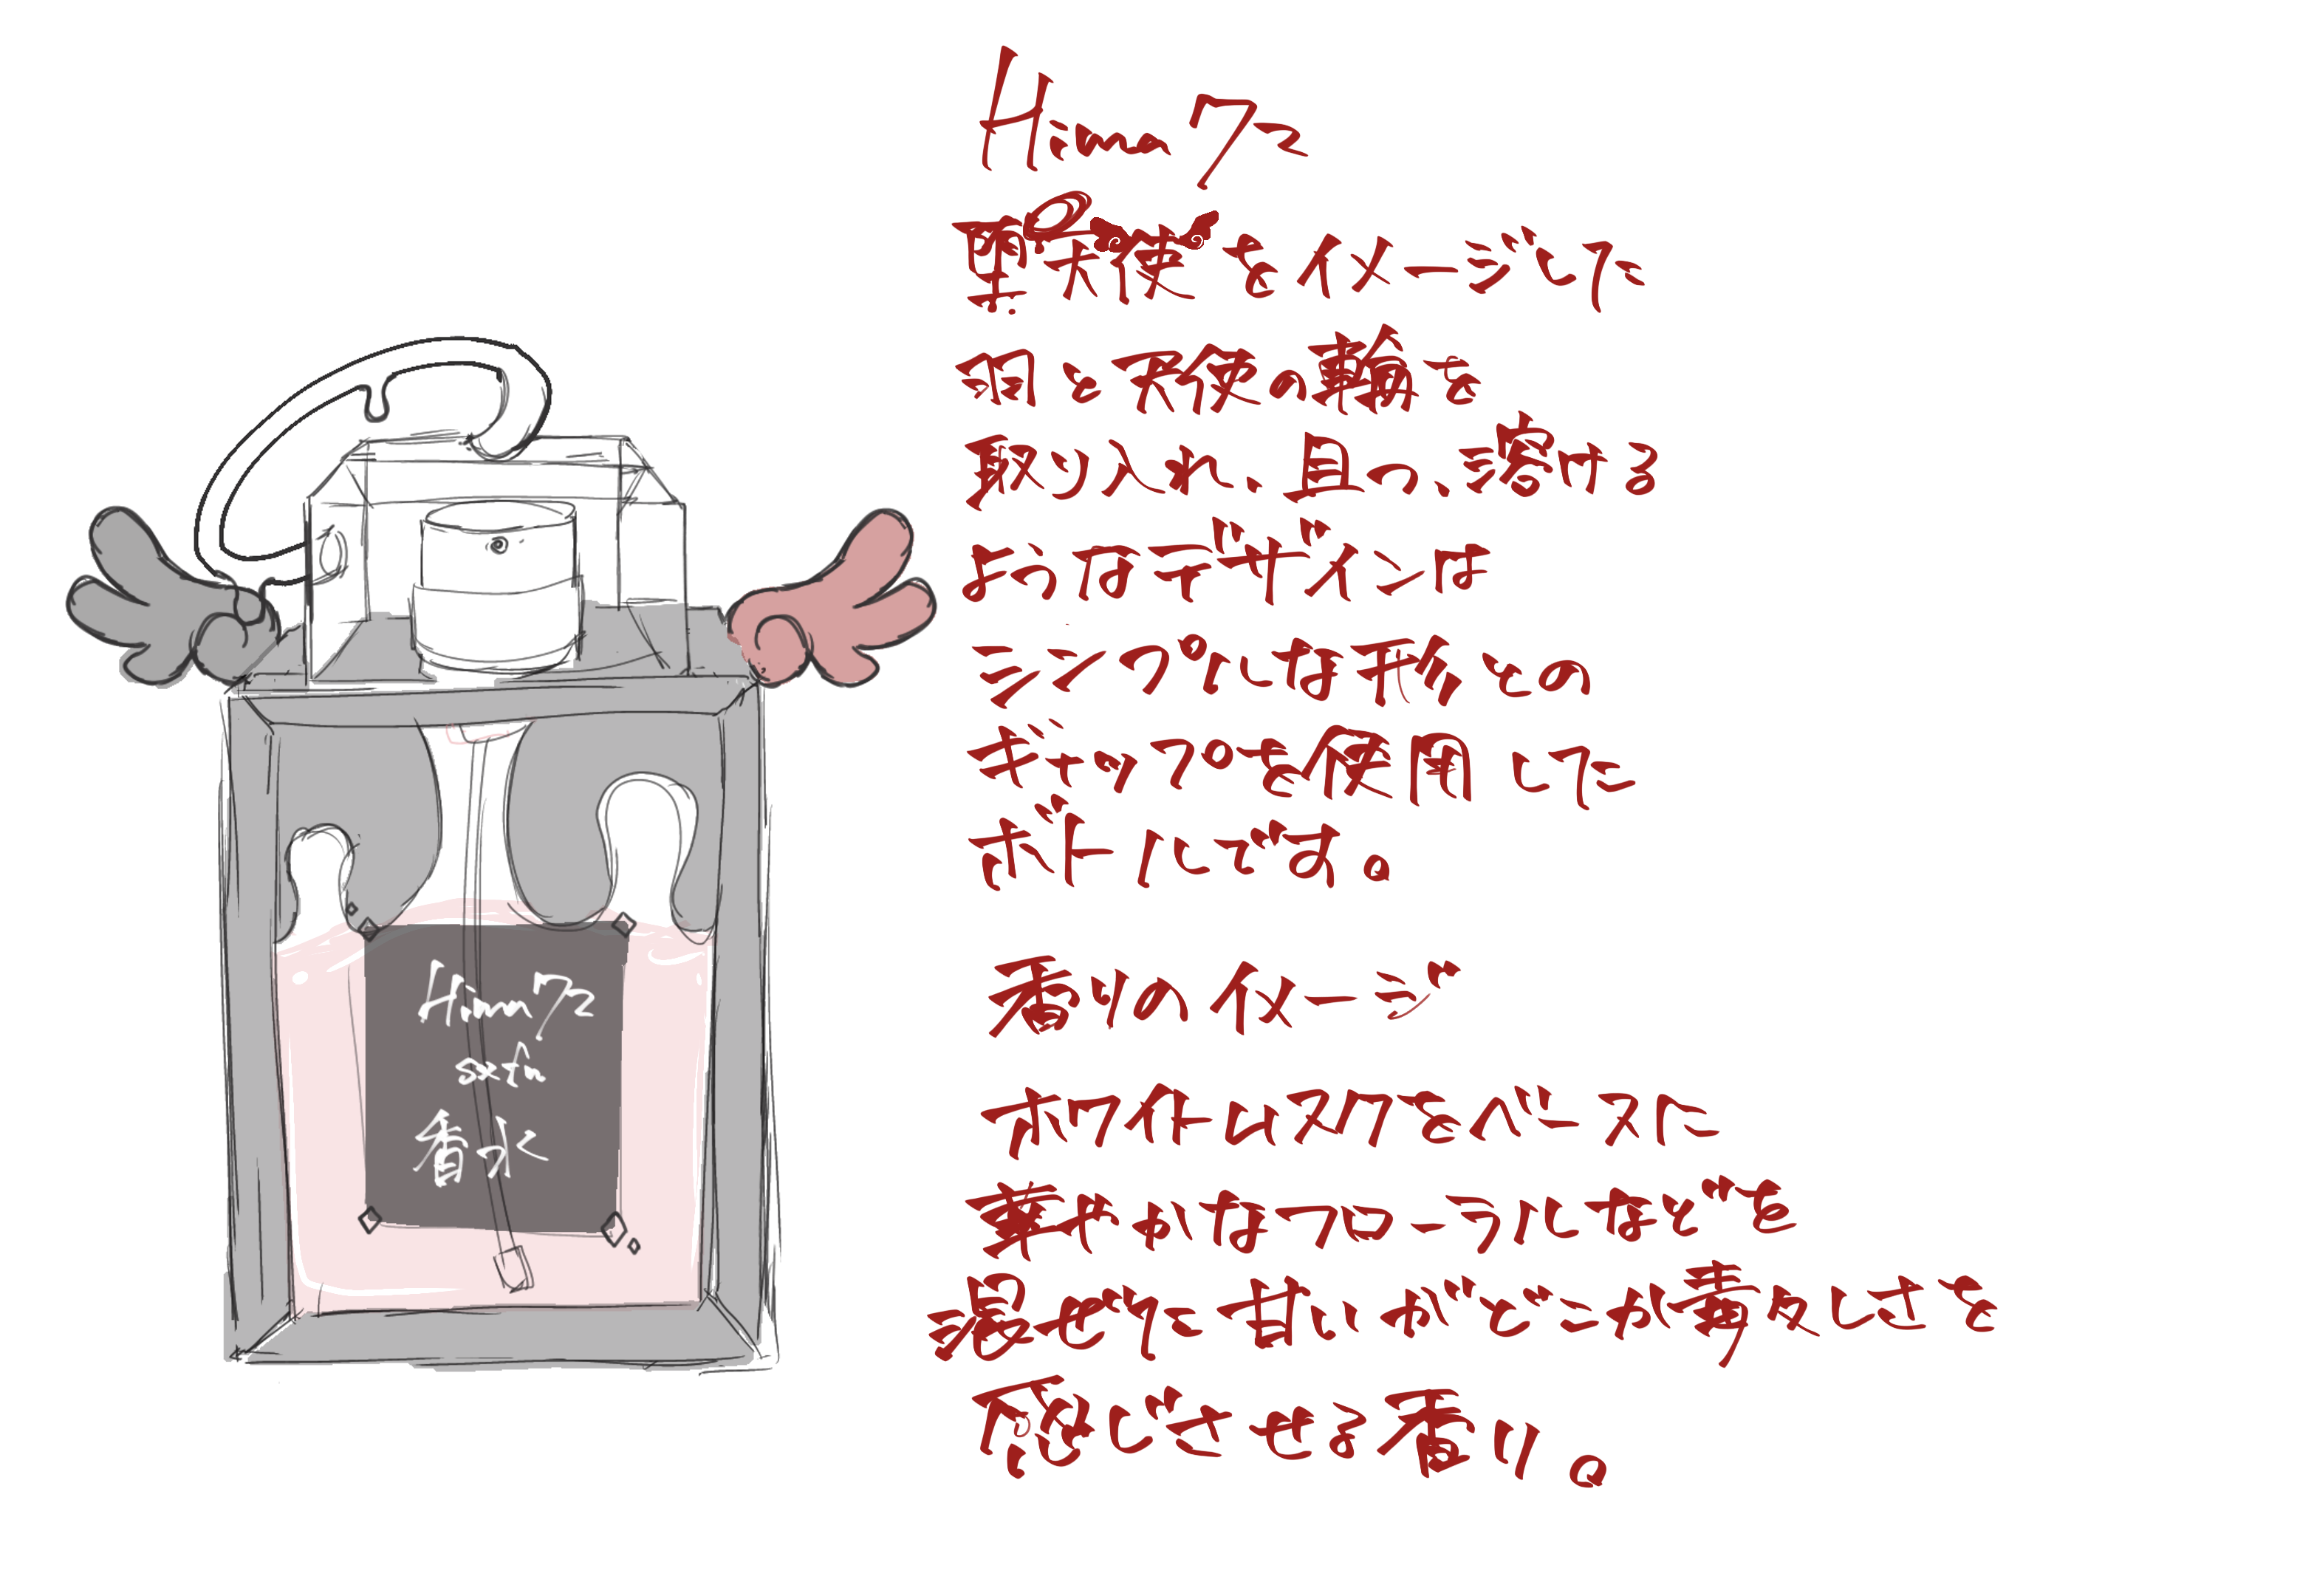 Hima72
堕天使をイメージした
羽と天使の輪を
取り入れ、且つ、溶ける
ようなデザインは
シンプルな形との
ギャップを使用した
ボトルです。
香りのイメージ
ホワイトムスクをベースに
華やかなフローラルなどを
混ぜた甘いがどこか毒々しさを
感じさせる香り。
Hima72
香水